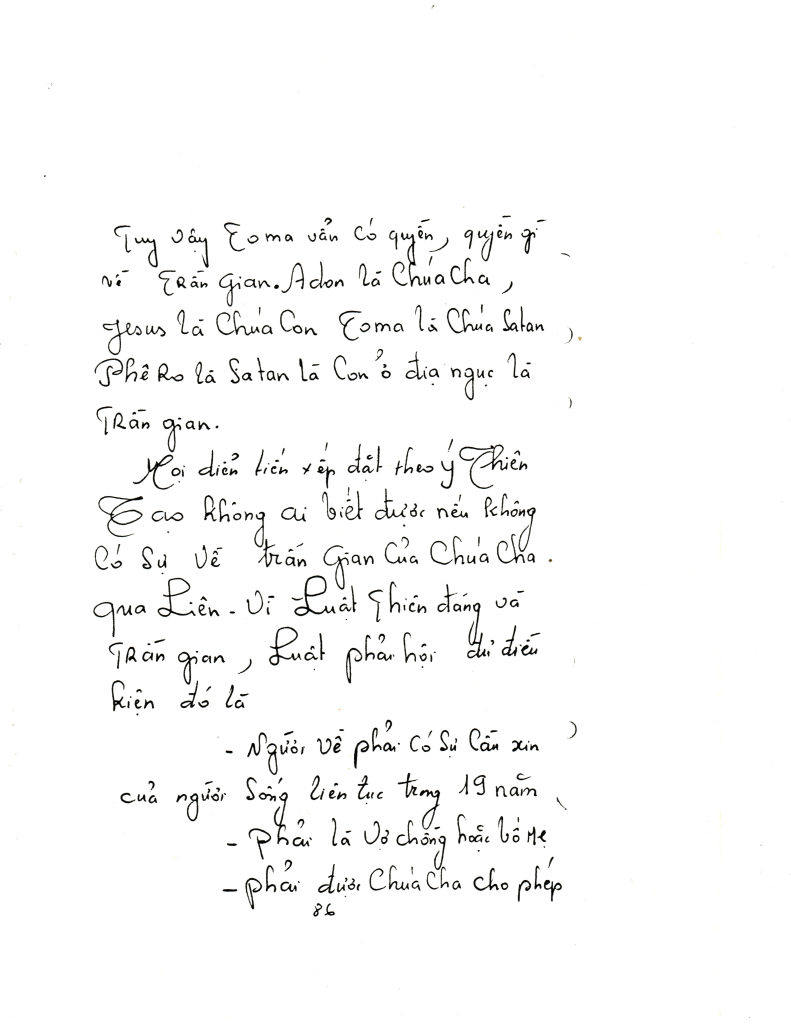 Tuy vậy Toma vẫn có quyền, quyền gì
về Trần Gian. Adon là Chúa Cha,
Jesus là Chúa Con Toma là Chúa Satan
Phê Rô là Satan là Con ở địa ngục là
Trần gian.
Mọi diễn tiến xếp đặt theo ý Thiên
Tạo không ai biết được nếu không
Có Sự Về trần Gian Của Chúa Cha.
qua Liên - Vì Luật Thiên đàng và
Trần gian, Luật phải hội đủ điều
kiện đó là
- Người Về phải Có Sự Cần xin
của người Sống liên tục trong 19 năm
- Phải là Vợ chồng hoặc bố Mẹ
- phải được Chúa Cha cho phép
86